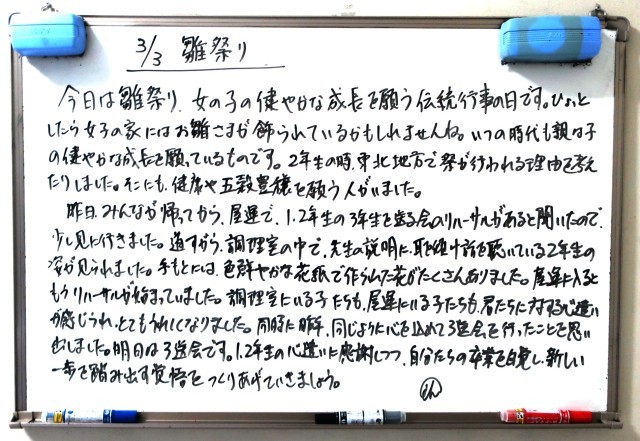 3/3 雛祭り
今日は雛祭り、女の子の健やかな成長を願う伝統行事の日です。ひょっと
したら女子の家にはお雛さまが飾られているかもしれませんね。いつの時代も親は子
の健やかな成長を願っているものです。2年生の時、東北地方で祭が行われる理由を考え
たりしました。そこにも、健康や五穀豊穣を願う人がいました。
昨日、みんなが帰ってから、屋運で、1、2年生の3年生を送る会のリハーサルがあると聞いたので、
少し見に行きました。道すがら、調理室の中で、先生の説明に、耳を傾け話を聴いている2年生の
姿が見られました。手もとには、色鮮やかな花紙で作られた花がたくさんありました。屋運に入ると
もうリハーサルが始まっていました。調理室にいる子たちも、屋運にいる子たちも、君たちに対する心遣い
が感じられ、とてもうれしくなりました。同時に昨年、同じように心を込めて3送会を行ったことを思い
出しました。明日は3送会です。1、2年生の心遣いに感謝しつつ、自分たちの卒業を自覚し、新しい
一歩を踏み出す覚悟をつくりあげていきましょう。